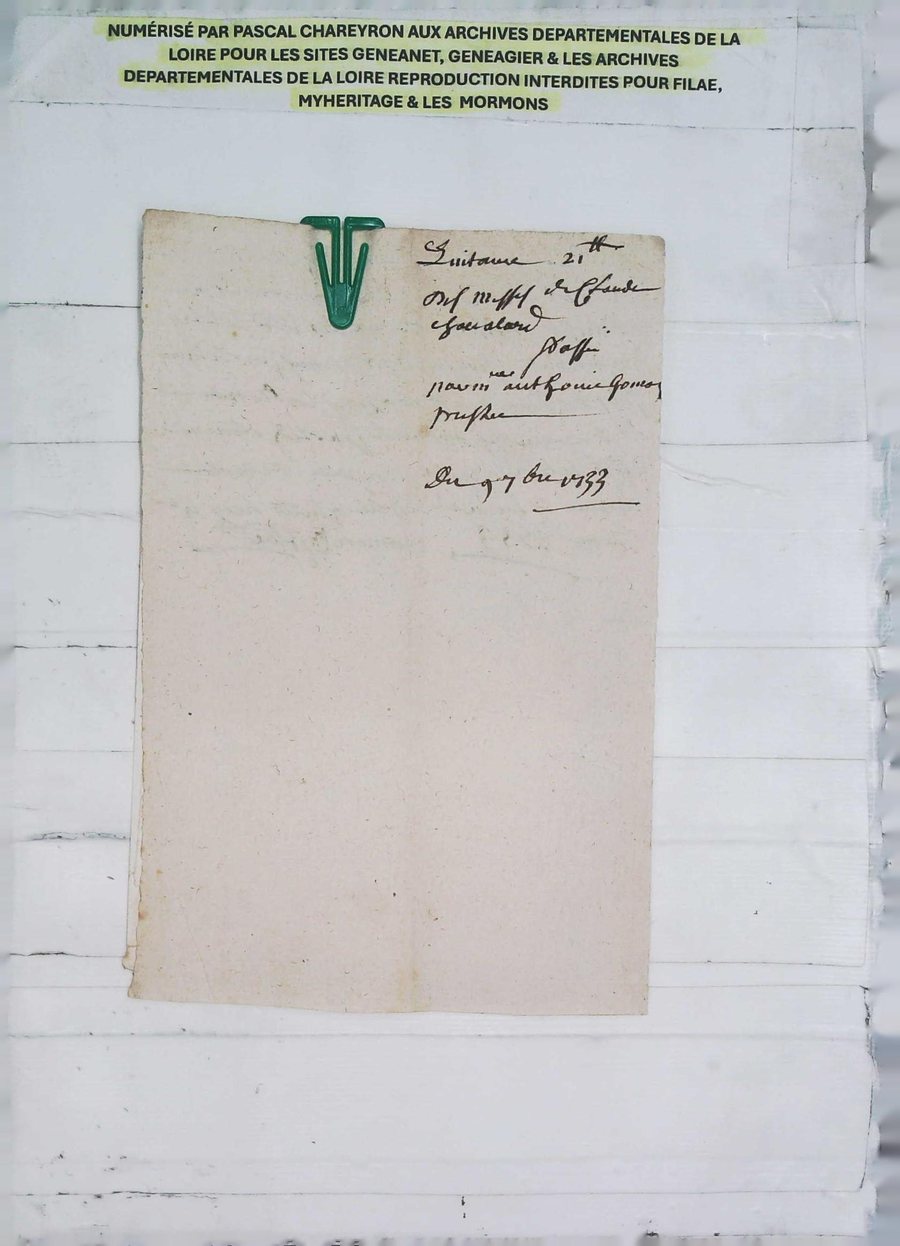 NUMÉRISÉ PAR PASCAL CHAREYRON AUX ARCHIVES DEPARTEMENTALES DE LA
LOIRE POUR LES SITES GENEANET, GENEAGIER & LES ARCHIVES
DEPARTEMENTALES DE LA LOIRE REPRODUCTION INTERDITES POUR FILAE,
MYHERITAGE & LES MORMONS
Quitance 21tt
des messes de Claude
chavalard
passé
par mre anthoine
prestre
Du 9 7bre 1733